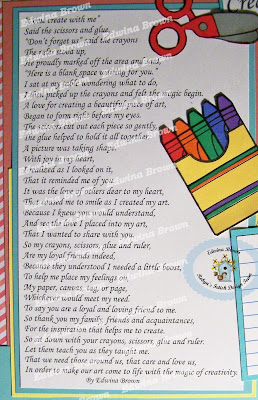 Crea
create with me"
Said the scissors and glue,
"Don't forget us" said the crayons
The ruler stood up,
He proudly marked off the area and said,
"Here is a blank space waiting for you."
I sat at my table wondering what to do,
I then picked up the crayons and felt the magic begin.
A love for creating a beautiful piece of art,
Began to form right before my eyes.
The scissors cut out each piece so gently,
The glue helped to hold it all together.
A picture was taking shape,
With joy in my heart,
I realized as I looked on it,
That it reminded me of you.
It was the love of others dear to my heart,
That caused me to smile as I created my art.
Because I knew you would understand,
And see the love I placed into my art,
That I wanted to share with you.
So my crayons, scissors, glue and ruler,
Are my loyal friends indeed,
Because they understood I needed a little boost,
To help me place my feelings on,
My paper, canvas, tag, or page,
Whichever would meet my need.
To say you are a loyal and loving friend to me.
So thank you my family, friends and acquaintances,
For the inspiration that helps me to create.
So sit down with your crayons, scissors, glue and ruler.
Let them teach you as they taught me.
That we need those around us, that care and love us,
In order to make our art come to life with the magic of creativity.
By Edwina Brown
Edwina Brown